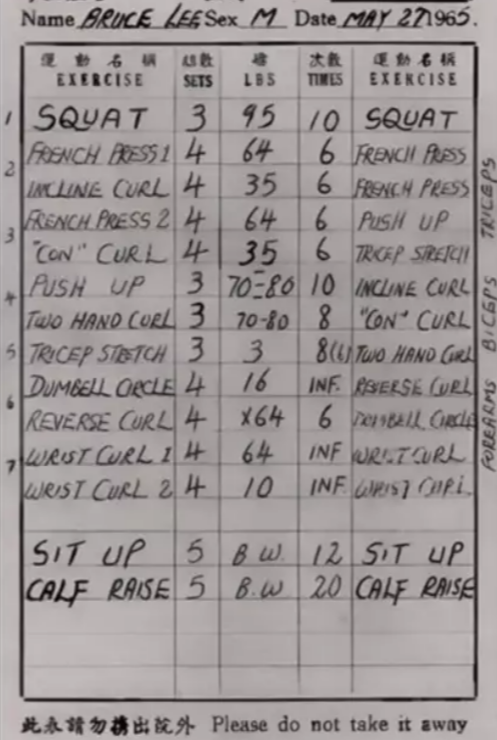 Name BRUCE LEE Sex M Date MAY 27 1965.
運動名稱 組數 磅 次數 運動名稱
EXERCISE SETS LBS TIMES EXERCISE
1 SQUAT 3 95 10 SQUAT
FRENCH PRESS 1 4 64 6 FRENCH PRESS
2 INCLINE CURL 4 35 6 FRENCH PRESS
FRENCH PRESS 2 4 64 6 PUSH UP
3 "CON" CURL 4 35 6 TRICEP STRETCH
PUSH UP 3 70-80 10 INCLINE CURL
4 TWO HAND CURL 3 70-80 8 "CON" CURL
5 TRICEP STRETCH 3 3 8(6) TWO HAND CURL
DUMBELL CIRCLE 4 16 INF. REVERSE CURL
6 REVERSE CURL 4 X64 6 DUMBELL CIRCLE
WRIST CURL 1 4 64 INF WRIST CURL
7 WRIST CURL 2 4 10 INF. WRIST CURL
SIT UP 5 B.W. 12 SIT UP
CALF RAISE 5 B.W 20 CALF RAISE
TRICEPS
BICEPS
FOREARMS
此表請勿攜出院外 Please do not take it away